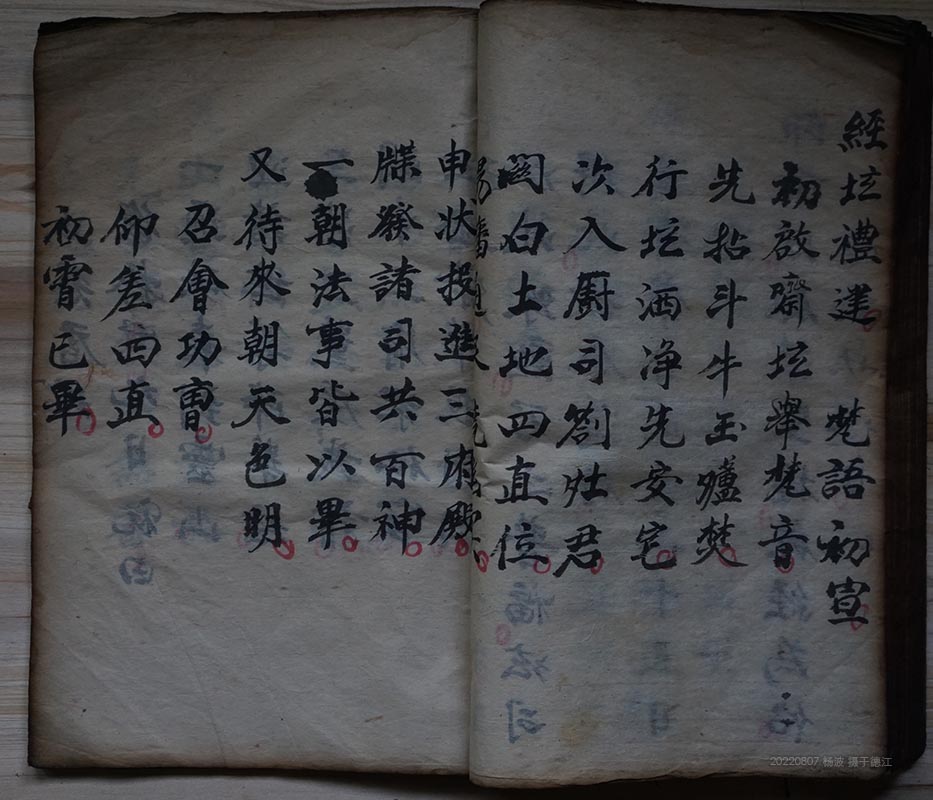 經坛禮達 梵語初宣
初啟齋坛舉梵音
先拈斗牛玉爐焚
行坛洒净先安宅
次入厨司劄灶君
関白土地四直位
申狀投進三府殿
牒發諸司共百神
一朝法事皆以畢
又待來朝天色明
召會功曹
仰差四直
初霄已畢
20220807 杨波 摄于德江